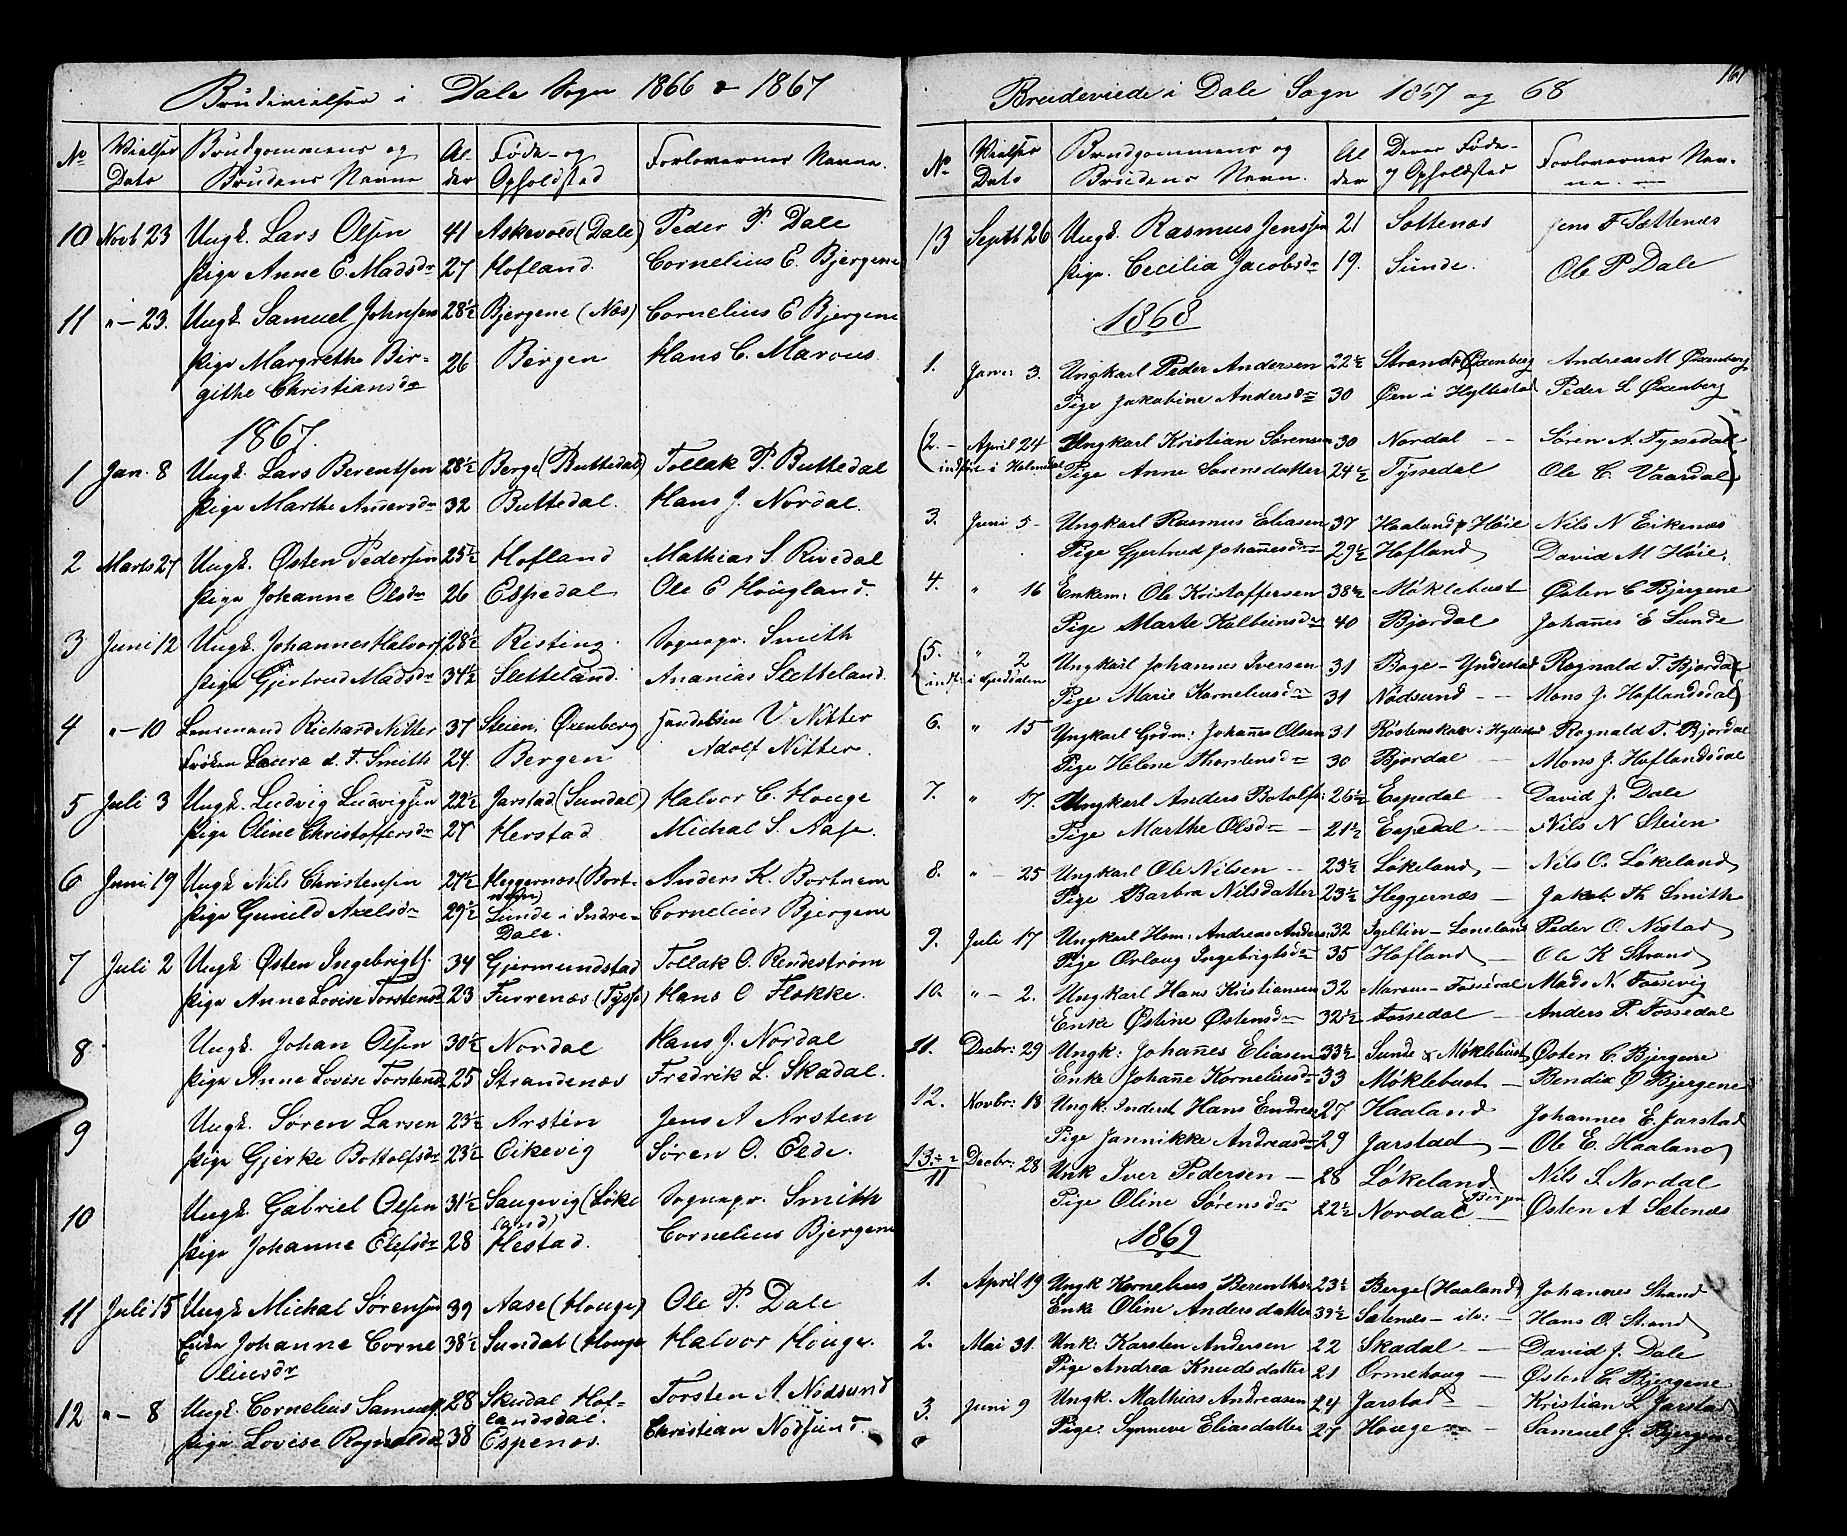 Brudevielser i Dale Sogn 1866 & 1867
No Vielses Brudgommens og Al- Føde- og Forlovernes Navne.
Dato Brudens Navne der Opholdsted
10 Novb 23 Ungk. Lars Olsen 41 Askevold (Dale) Peder P. Dale
Pige Anne E. Madsdr 27 Hofland. Cornelius E. Bjergene
11 " - 23. Ungk. Samuel Johnsen 28½ Bjergene (Næs) Cornelius E Bjergene
Pige Margrethe Bir- 26 Bergen Hans C. Marcus.
githe Christiansdr
1867.
1 Jan. 8 Ungk. Lars Berentsen 28½ Berge (Buttedal) Tollak P. Buttedal
Pige Marthe Andersdr 32 Buttedal. Hans J. Nordal.
2 Marts 27 Ungk. Østen Pedersen 25½ Hofland Mathias S. Rivedal
Pige Johanne Olsdr 26 Espedal Ole E Hougland.
3 Juni 12 Ungk. Johannes Halvors 28½ Risting. Sognepr. Smith
Pige Gjertrud Madsdr 34½ Sletteland. Ananias Sletteland.
4 " - 10 Lensmand Richard Nitter 37 Steien, Øxenberg V. Nitter
Frøken Laura d. F. Smith 24. Bergen Adolf Nitter.
5 Juli 3 Ungk. Ludvig Ludvigsen 22½ Jarstad (Sundal) Halvor C. Houge
Pige Oline Christoffersdr 27 Herstad. Michal S. Aase.
6 Juni 19 Ungk Nils Christensen 27½ Heggernæs (Bort- Anders K. Bortnem
Pige Gunild Axelsdr 29½ Sunde i Indre- Cornelius Bjergene
Dale.
7 Juli 2 Ungk. Østen Ingebrigts. 34 Gjermundstad Tollak O. Rendestrøm
Pige Anne Lovise Torstensd 23 Furrenæs (Tysse) Hans O Flekke.
8 Ungk. Johan Olsen 30½ Nordal Hans J. Nordal
Pige Anne Lovise Torstensd 25 Strandenæs Fredrik L. Skadal.
9 Ungk. Søren Larsen 23½ Arsten Jens A Arsten
Pige Gjerke Bottolfsdr 23½ Eikevig Søren O. Eide.
10 Ungk. Gabriel Olsen 31½ Saugevig (Løke Sognepr. Smith
land)
Pige Johanne Elefsdr 28 Hestad. Cornelius Bjergene
11 Juli 15 Ungk Michal Sørensen 39 Aase (Houge) Ole P. Dale
Enke Johanne Corne 38½ Sundal (Houge Halvor Houge.
liusdr
12 " - 8 Ungk. Cornelius Samuels. 28 Skudal Hof- Torsten A. Nødsund
landsdal.
Pige Lovise Rognaldsd 38 Espenæs. Christian Nødsund.

161
Brudeviede i Dale Sogn 1867 og 68
No Vielses Brudgommens og Al Deres Føde- Forlovernes Nav-
Dato Brudens Navn. der og Opholdsted ne.
13 Septb 26 Ungk. Rasmus Jenssen 21 Sættenæs Jens F Sættenæs
Pige. Cecilia Jacobsdr 19. Sunde. Ole P Dale
1868
1. Janr: 3. Ungkarl Peder Andersen 22½ Strand (Øxenberg Andreas M Øxenberg
Pige Jakobine Andersdr 30 Øen i Hyllestad Peder L Øxenberg
(2. - April 24 Ungkarl Kristian Sørensen 30 Nordal - - Søren A. Tyssedal
indføre i Holmedal Pige Anne Sørensdatter 24½ Tyssedal Ole C. Vaardal)
3. Juni 5 - Ungkarl Rasmus Eliasen 37 Haaland p Høie Nils N Eikenæs
Pige Gjertrud Johannesdr 29½ Hofland David M Høie.
4. " 16 Enkem: Ole Kristoffersen 38½ Møklebust Østen C Bjergene
Pige Marte Kolbeinsdr 40 Bjordal Johannes E Sunde
(5. " 2 Ungkarl Johannes Iversen 31 Boge - Yndestad Rognald T. Bjordal
Pige Marie Korneliusdr 31 Nødsund - - Mons J. Hoflandsdal)
6. " 15 Ungkarl Gdm: Johannes Olsen 31 i Hyllestad Rognald T. Bjordal
Pige Helene Thorstensdr 30 Bjordal - Mons J. Hoflandsdal
7. " 17. Ungkarl Anders Botolfs: 26½ Espedal - David J. Dale
Pige Marthe Olsdr - 21½ Espedal - Nils N Steien
8. " - 25 Ungkarl Ole Nilsen - - 23½ Løkeland - Nils O. Løkeland
Pige Barbra Nilsdatter 23½ Heggernæs - Jakob Th Smith
9. Juli 17 Ungkarl Hsm: Andreas Anders: 32 Igeltin - Loneland Peder O. Nistad
Pige Ørlaug Ingebrigtsdr 35 Hofland - Ole K Strand
10. " - 2. Ungkarl Hans Kristiansen 32 - Fossedal Mads N. Fossevig
Enke Østine Østensdr 32½ Fossedal - Anders P. Fossedal
11. Decbr: 29 Ungk: Johannes Eliasen 33½ Sunde & Møklebust Østen C. Bjergene
Enke Johanne Korneliusdr 33 Møklebust - Bendix O Bjergene
12. Novbr: 18 Ungk. Inderst Hans Endres 27 Haaland Johannes E. Jarstad
Pige Jannikke Andreasdr 29 Jarstad - Ole E. Haaland
13. Decbr: 28 Unk Iver Pedersen - 28 Løkeland Nils S. Nordal
11
Pige Oline Sørensdr 22½ Nordal Bergen - Østen A Sætenæs
1869
1. April 19 Ungk Kornelius Berenths: 23½ Berge (Haaland) Johannes Strand
Enke Oline Andersdatter 39½ Sætenæs - Hans O. Strand
2. Mai 31. Unk: Karsten Andersen 22 Skadal - David J. Dale
Pige Andrea Knudsdatter 21 Ormehaug - Østen C. Bjergene
3. Juni 9 Ungk. Mathias Andreasen 24 Jarstad - Kristian L Jarstad
Pige: Synneve Eliasdatter 27 Houge - Samuel J. Bjergene